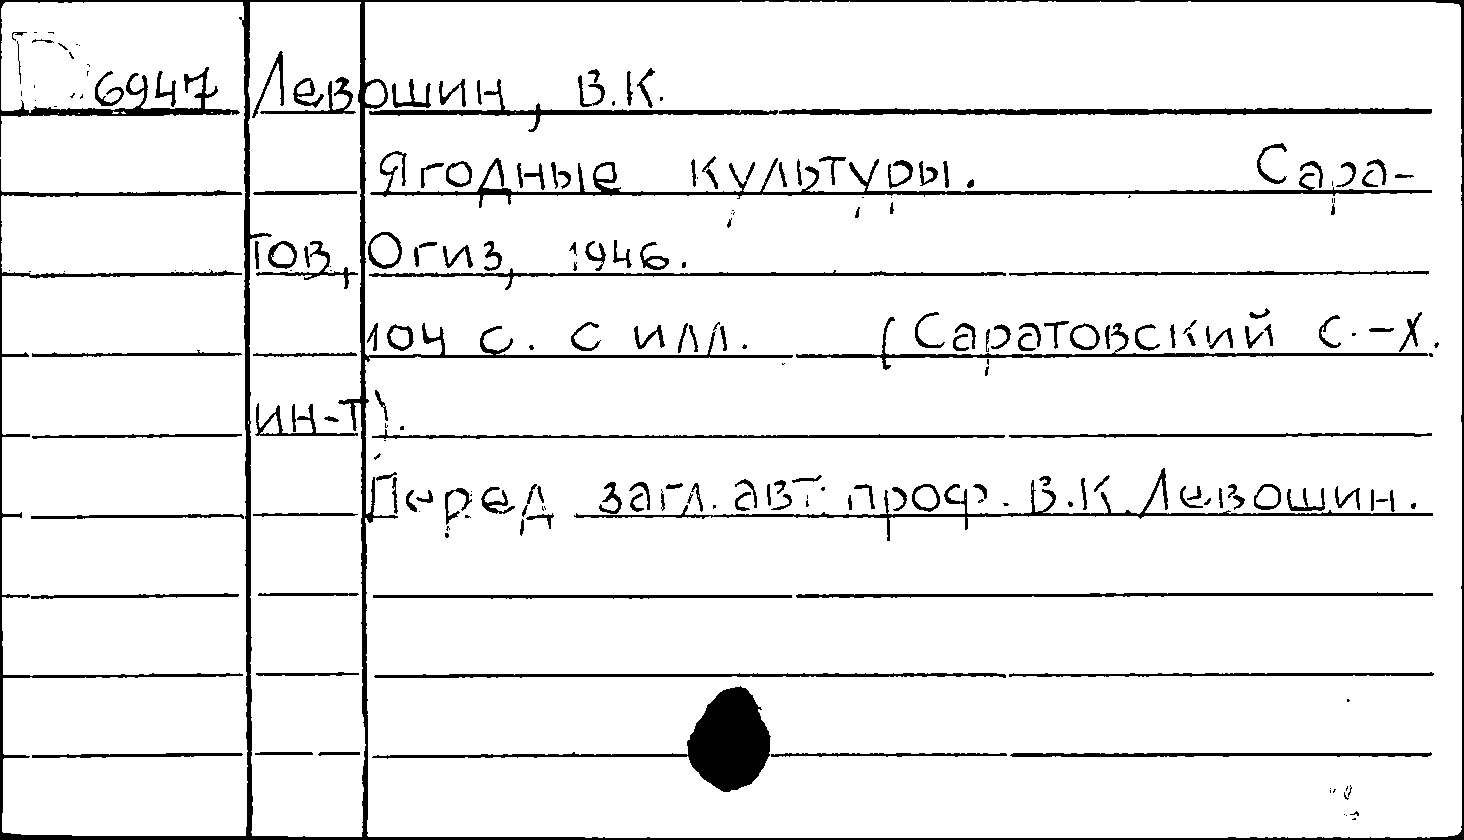 D 6947 Левошин, В.К.
Ягодные культуры. Сара-
тов, Огиз, 1946.
104 с. с илл. (Саратовский с.-х.
ин-т).
Перед загл. авт: проф. В.К. Левошин.